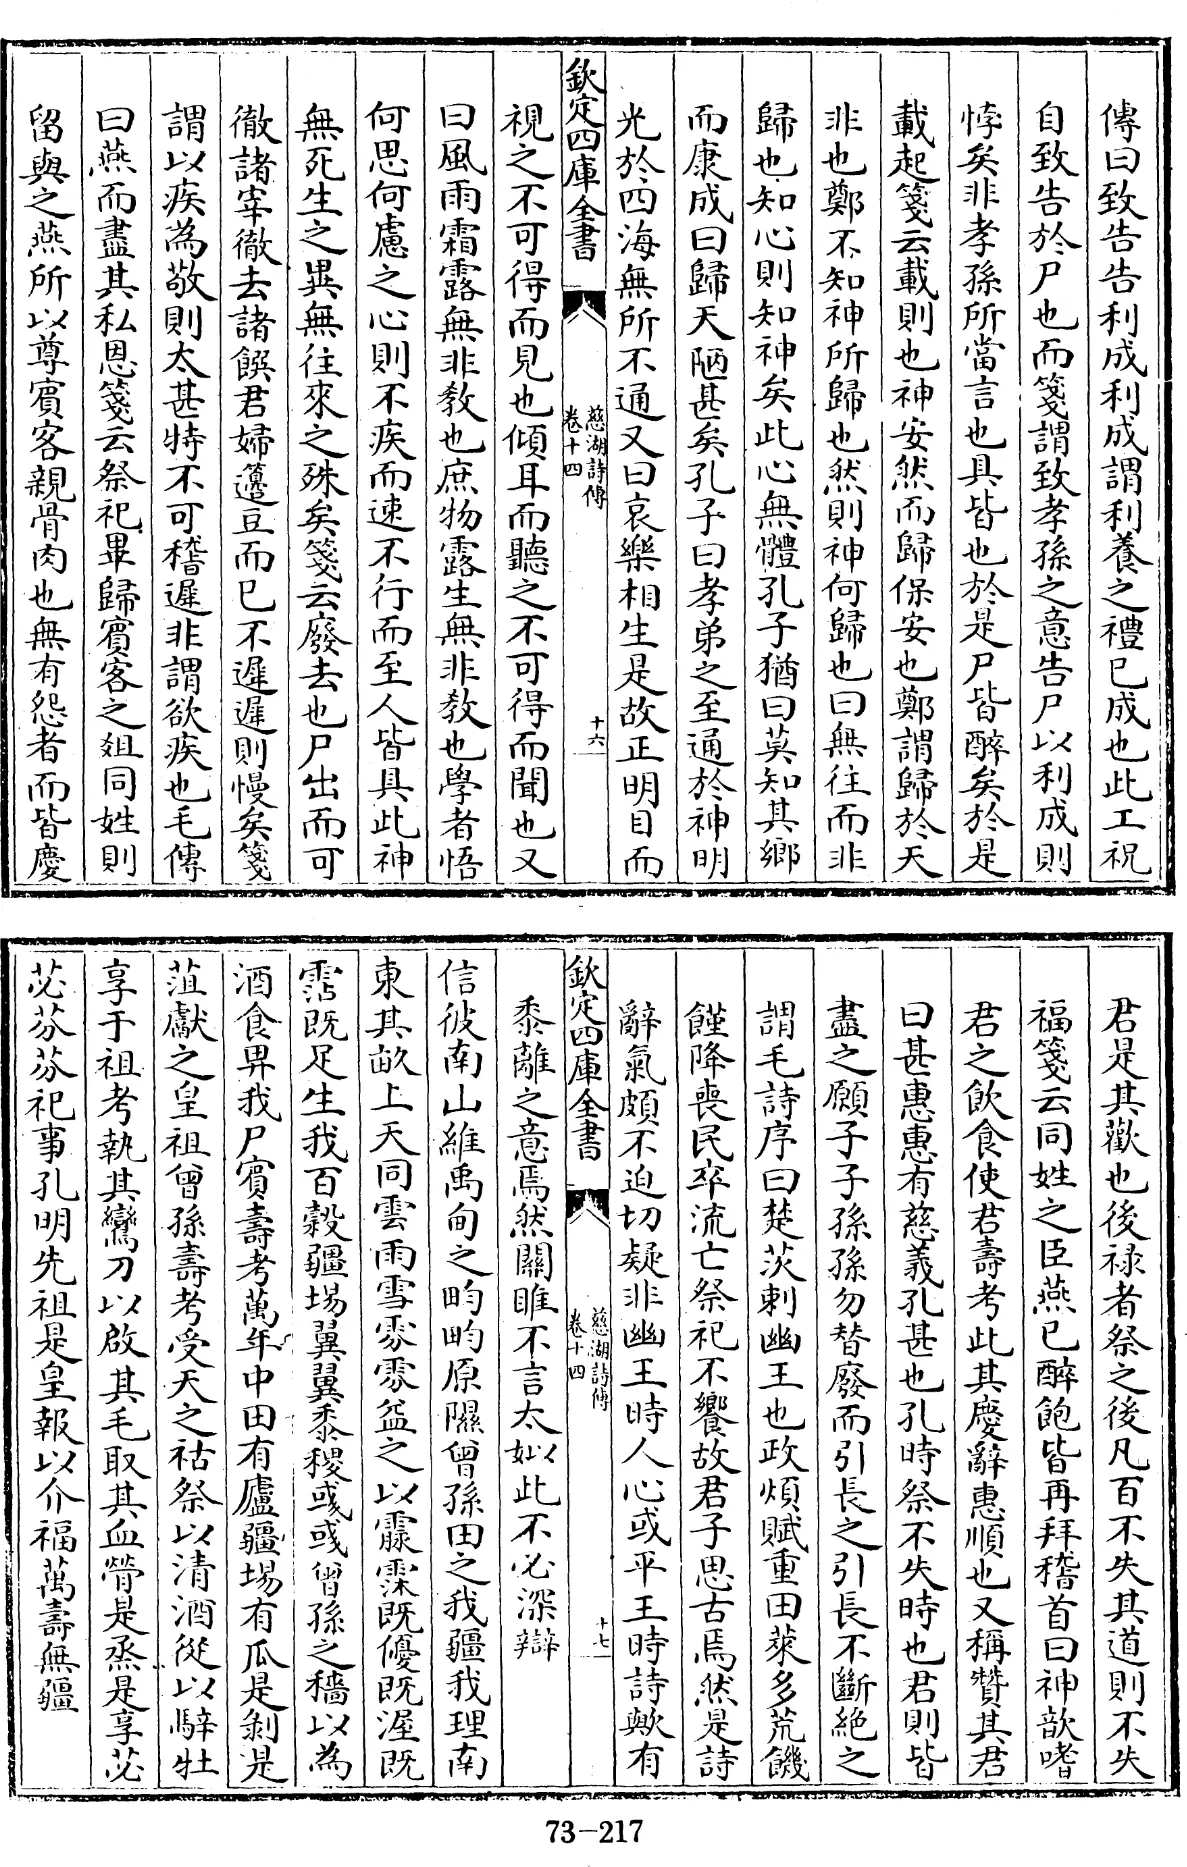 傳曰致告告利成利成謂利養之禮已成也此工祝
自致告於尸也而箋謂致孝孫之意告尸以利成則
悖矣非孝孫所當言也具皆也於是尸皆醉矣於是
載起箋云載則也神安然而歸保安也鄭謂歸於天
非也鄭不知神所歸也然則神何歸也曰無往而非
歸也知心則知神矣此心無體孔子猶曰莫知其鄉
而康成曰歸天陋甚矣孔子曰孝弟之至通於神明
光於四海無所不通又曰哀樂相生是故正明目而
欽定四庫全書
慈湖詩傳
卷十四
十六
視之不可得而見也傾耳而聽之不可得而聞也又
曰風雨霜露無非教也庶物露生無非教也學者悟
何思何慮之心則不疾而速不行而至人皆具此神
無死生之異無往來之殊矣箋云廢去也尸出而可
徹諸宰徹去諸饌君婦籩豆而已不遲遲則慢矣箋
謂以疾為敬則太甚特不可稽遲非謂欲疾也毛傳
曰燕而盡其私恩箋云祭祀畢歸賓客之俎同姓則
留與之燕所以尊賓客親骨肉也無有怨者而皆慶
君是其歡也後禄者祭之後凡百不失其道則不失
福箋云同姓之臣燕已醉飽皆再拜稽首曰神歆嗜
君之飲食使君壽考此其慶辭惠順也又稱贊其君
曰甚惠惠有慈義孔甚也孔時祭不失時也君則皆
盡之願子子孫孫勿替廢而引長之引長不斷絶之
謂毛詩序曰楚茨刺幽王也政煩賦重田萊多荒饑
饉降喪民卒流亡祭祀不饗故君子思古焉然是詩
辭氣頗不迫切疑非幽王時人心或平王時詩歟有
欽定四庫全書
慈湖詩傳
卷十四
十七
黍離之意焉然關雎不言太姒此不必深辯
信彼南山維禹甸之畇畇原隰曾孫田之我疆我理南
東其畝上天同雲雨雪雰雰益之以霢霂既優既渥既
霑既足生我百穀疆埸翼翼黍稷彧彧曾孫之穡以為
酒食畀我尸賓壽考萬年中田有廬疆埸有瓜是剝是
菹獻之皇祖曾孫壽考受天之祜祭以清酒從以騂牡
享于祖考執其鸞刀以啟其毛取其血膋是烝是享苾
苾芬芬祀事孔明先祖是皇報以介福萬壽無疆
73-217